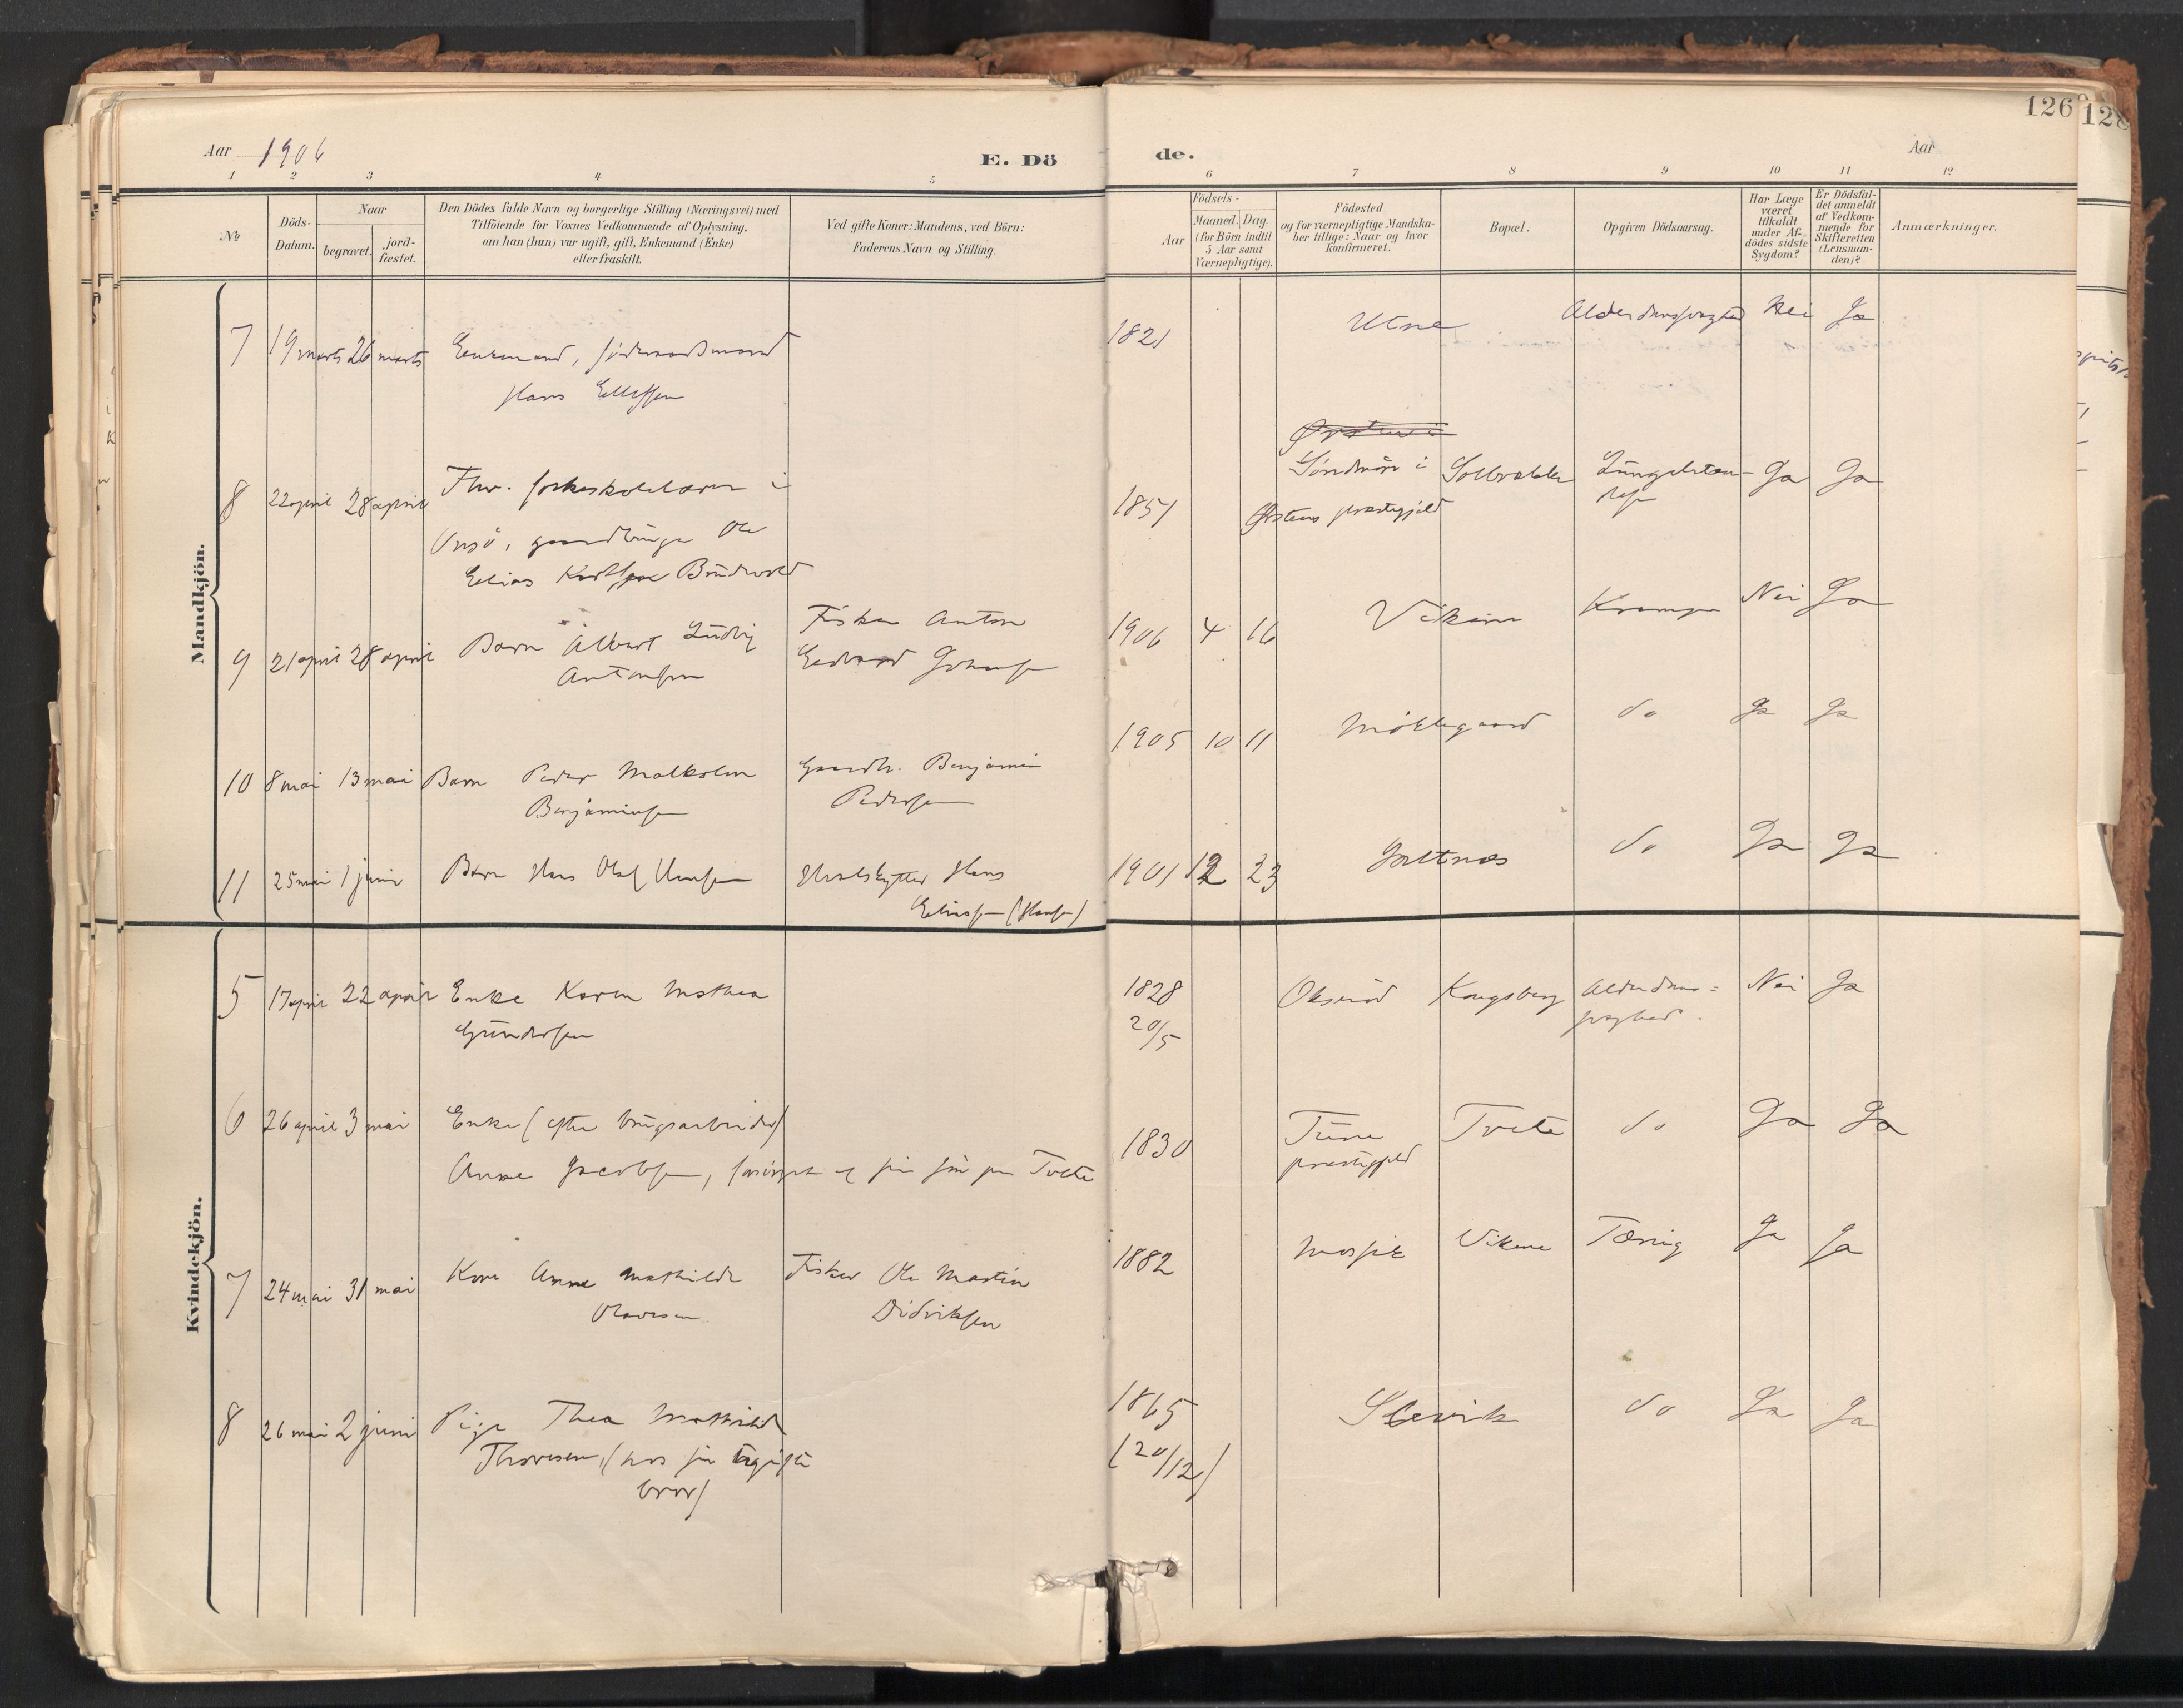 126
128
Aar 1906
E. Dö
de.
Aar
1 2 3 4 5 6 7 8 9 10 11 12
No
Döds-Datum.
Naar
begravet.
jord-fæstet.
Den Dödes fulde Navn og borgerlige Stilling (Næringsvei) med
Tilföiende for Voxnes Vedkommende af Oplysning,
om han (hun) var ugift, gift, Enkemand (Enke)
eller fraskilt.
Ved gifte Koner: Mandens, ved Börn:
Faderens Navn og Stilling.
Aar
Födsels-
Maaned. Dag.
(for Börn indtil
5 Aar samt
Værnepligtige).
Födested
og for værnepligtige Mandska-
ber tillige: Naar og hvor
konfirmeret.
Bopæl.
Opgiven Dödsaarsag.
Har Læge
været
tilkaldt
under Af-
dödes sidste
Sygdom?
Er Dödsfal-
det anmeldt
af Vedkom-
mende for
Skifteretten
(Lensman-
den)?
Anmærkninger.
Mandkjön.
7 19 marts 26 marts Enkemand,
Hans Ellefsen
1821 Utne Alderdomssvaghed Nei Ja
8 22 april 28 april Fhv. folkeskolelærer i
Onsö, gaardbruger Ole
Elias Brudevold
1851 Söndmöre i
Ørstens præstegjeld
Ja Ja
9 21 april 28 april Barn Albert Ludvig
Antonsen
Fisker Anton
Edvard Johansen
1906 4 16 Vikene Krampe Nei Ja
10 8 mai 13 mai Barn Peder Malkolm
Benjaminsen
Gaardb. Benjamin
Pedersen
1905 10 11 Möklegaard do Ja Ja
11 25 mai 1 juni Barn Hans Olaf Hansen
Hvalskytter Hans
Eliassen (Hansen)
1901 12 23 Galtnes do Ja Ja
Kvindekjön.
5 17 april 22 april Enke Karen Mathea
Gundersen
1828
20/5
Oksröd Kongsberg Alderdoms=
svaghed.
Nei Ja
6 26 april 3 mai Enke (efter brugsarbeider)
Anne Jacobsen, forsörget af sin sön paa Tofte
1830 Tune
præstegjeld
Tofte do Ja Ja
7 24 mai 31 mai Kone Anne Mathilde
Olavesen
Fisker Ole Martin
Didriksen
1882 Vikene Tæring Ja Ja
8 26 mai 2 juni Pige Thea Mathilde
Thoresen, (hos sin ugifte
bror)
1865
(20/12)
Slevik do Ja Ja